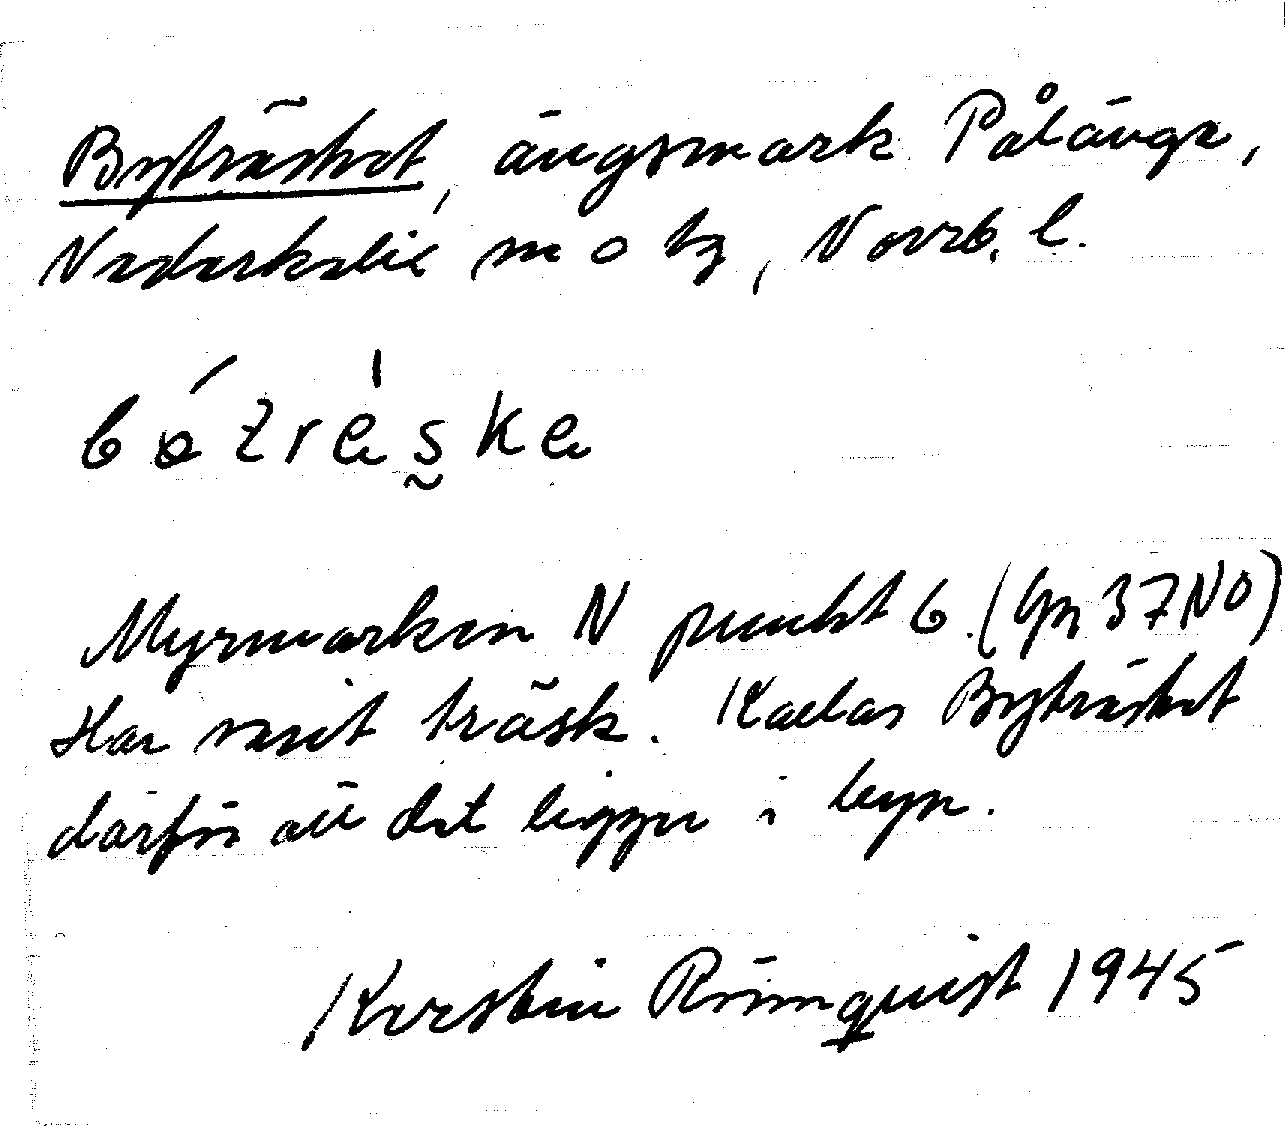 Byträsket, ängsmark Pålänge,
Nederkalix sn o tg, Norrb. l.
Myrmarken N punkt 6. (Gp 37 NO)
Har varit träsk. Kallas Byträsket
därför att det ligger i byn.
Kerstin Rönnquist 1945